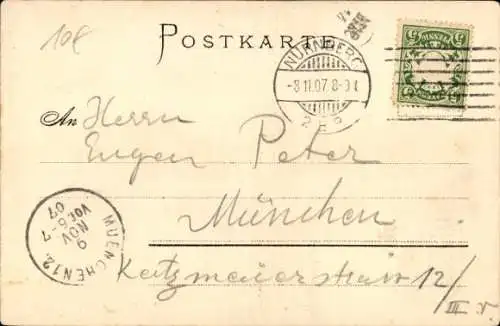 108
POSTKARTE
NÜRNBERG
-8.11.07. 8-9
2 BPP
BAYERN
5
An Herrn
Eugen Peter
München
Katzmaierstraße 12/
III r.
MUENCHEN 12.
9 NOV
Vor. 6-7
07